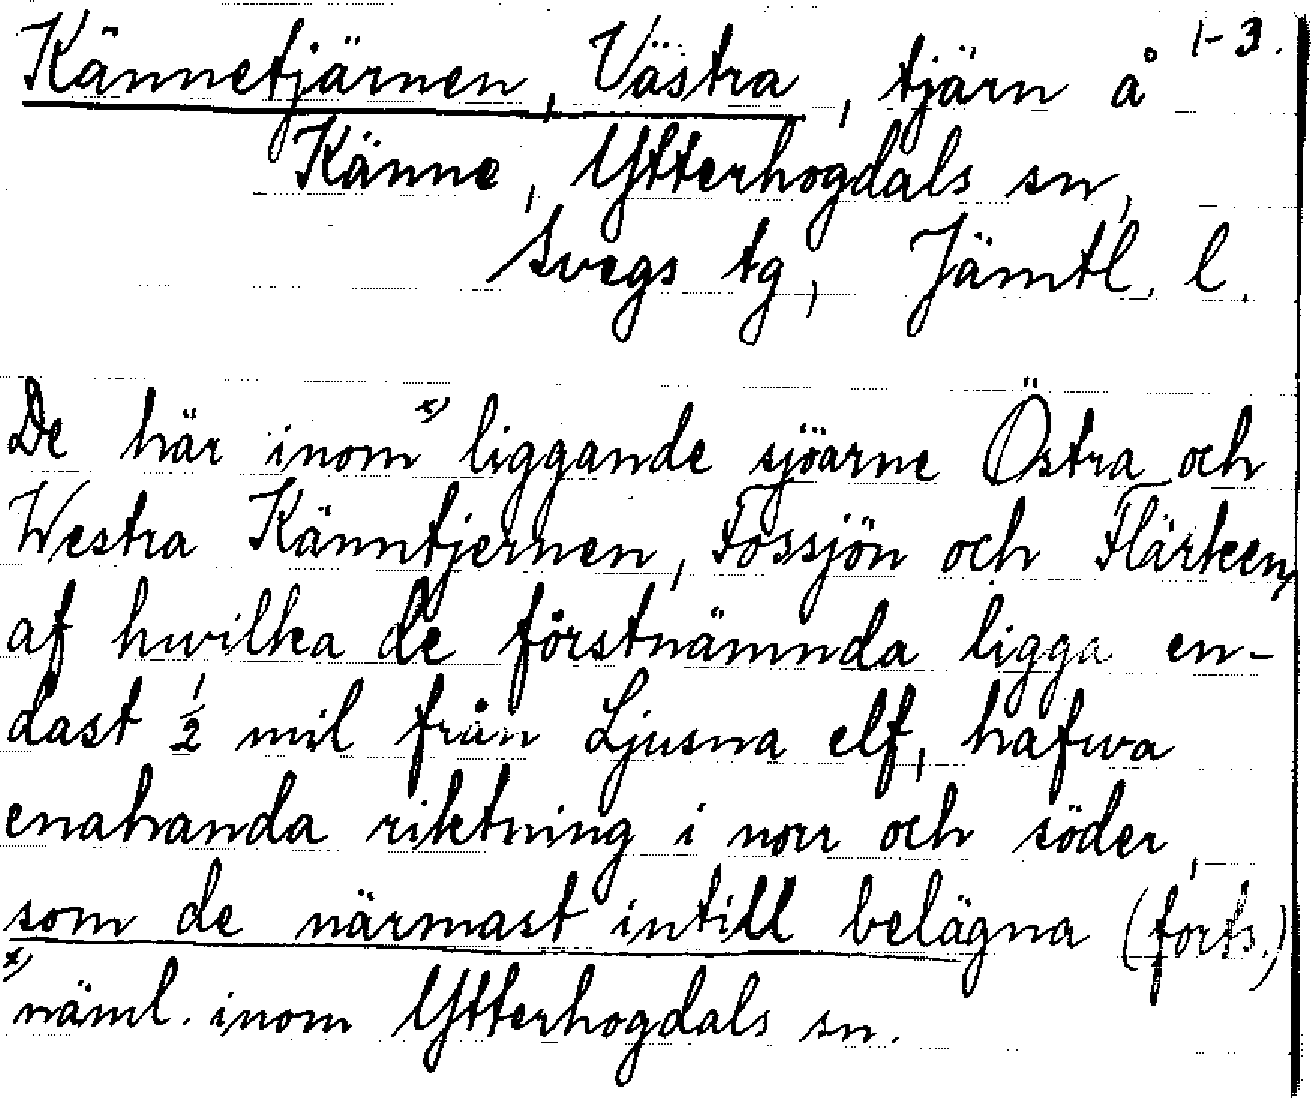 Kännetjärnen, Västra, tjärn å 1-3.
Känne, Ytterhogdals sn,
Svegs tg, Jämtl. l.
De här inom x) liggande sjöarne Östra och
Westra Känntjernen, Fossjön och Flärken,
af hwilka de förstnämnda ligga en-
dast 1/2 mil från Ljusna elf, hafwa
enahanda riktning i norr och söder,
som de närmast intill belägna (forts.)
x) näml. inom Ytterhogdals sn.